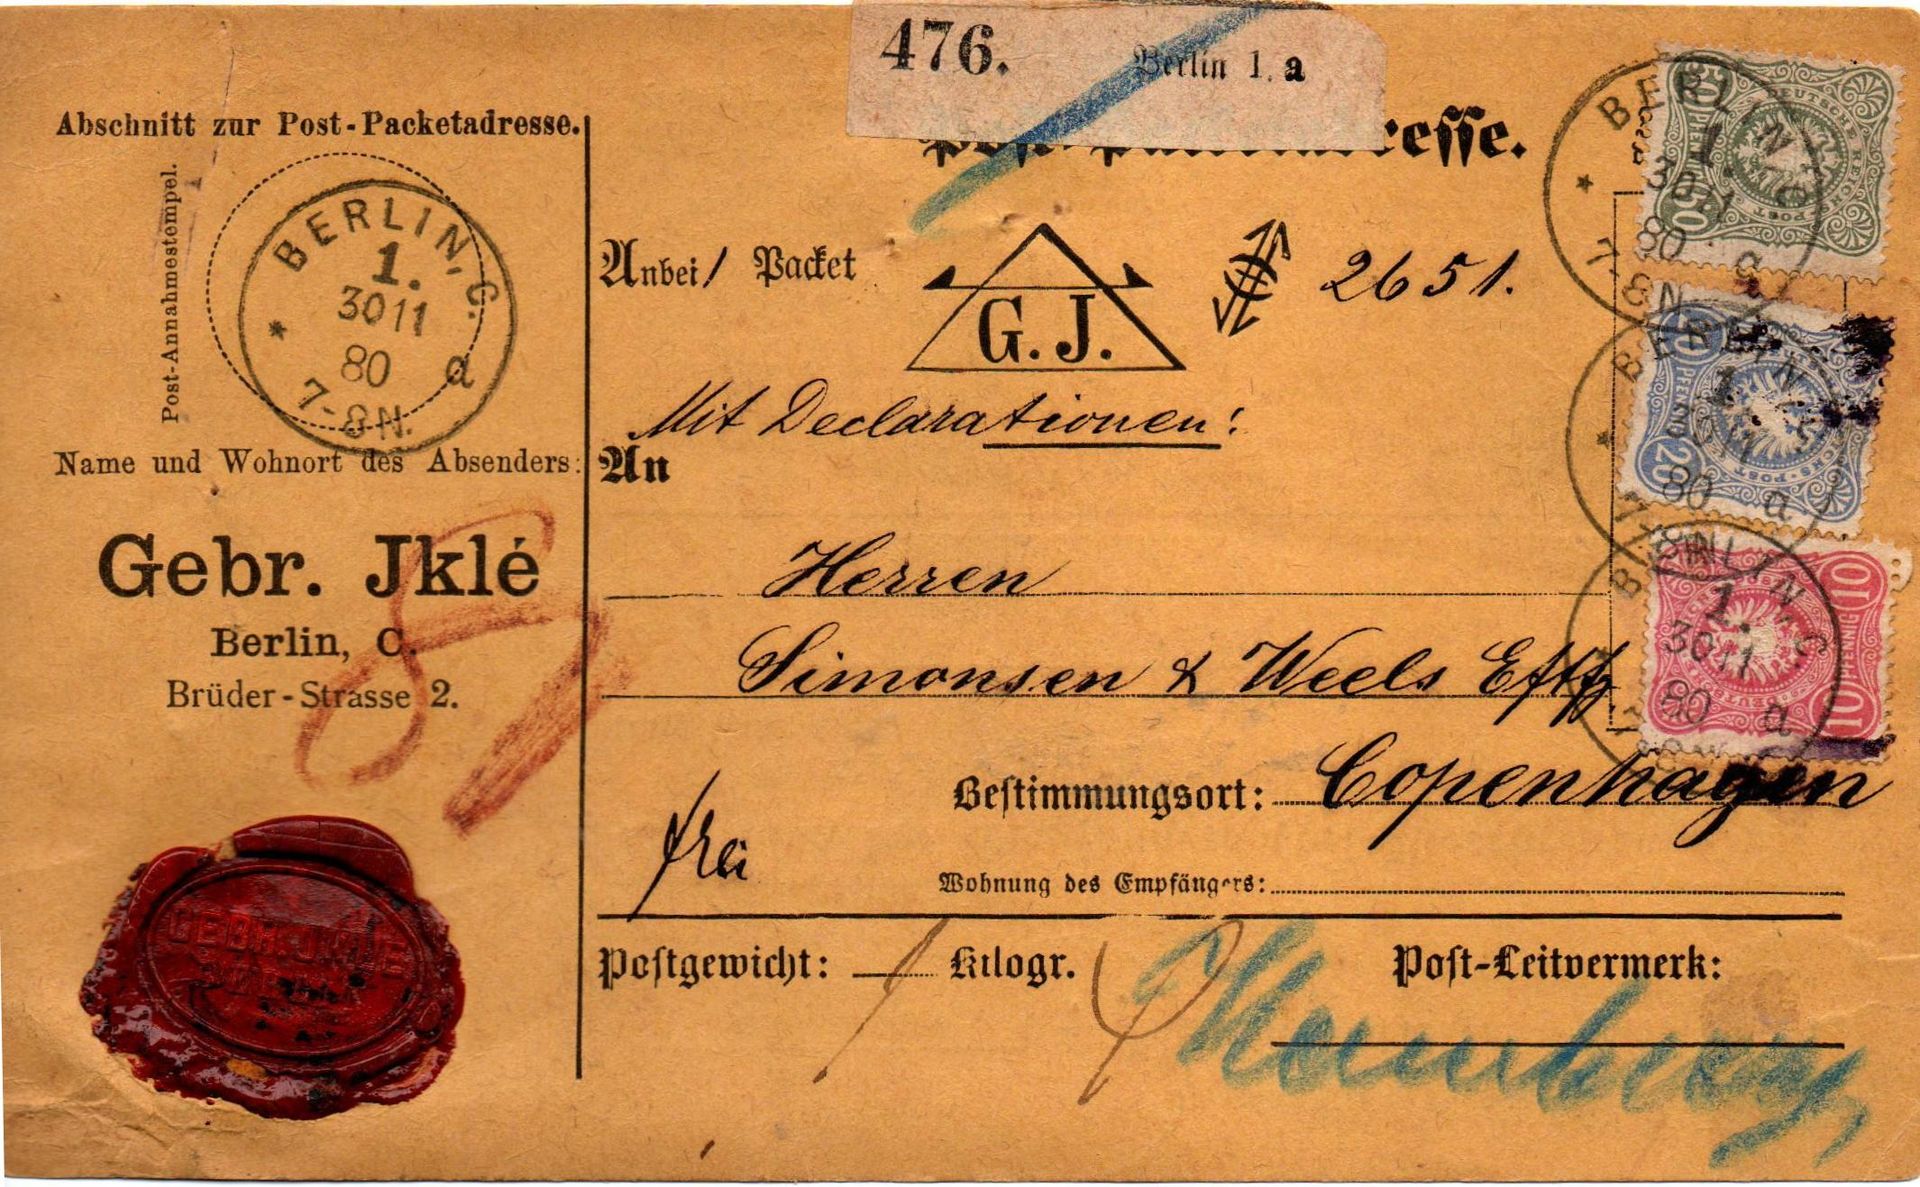 476. Berlin 1. a
Abschnitt zur Post-Packetadresse.
Post-Annahmestempel.
BERLIN, C.
1.
30 11
80 a
7-8 N.
Name und Wohnort des Absenders:
Gebr. Jklé
Berlin, C.
Brüder-Strasse 2.
8
resse.
Anbei 1 Packet
G. J.
2651.
Mit Declarationen!
An
Herren
Simonsen & Weels Eftf
Bestimmungsort: Copenhagen
frei
Wohnung des Empfängers:
Postgewicht: Kilogr.
Post-Leitvermerk:
Hamburg
50 PFENNIG 50
DEUTSCHE REICHS-POST
BERLIN, C.
1.
30 11
80 a
7-8 N.
20 PFENNIG 20
REICHS-POST
BERLIN
1.
80 a
10 PFENNIG 10
BERLIN, C.
1.
30 11
80 a